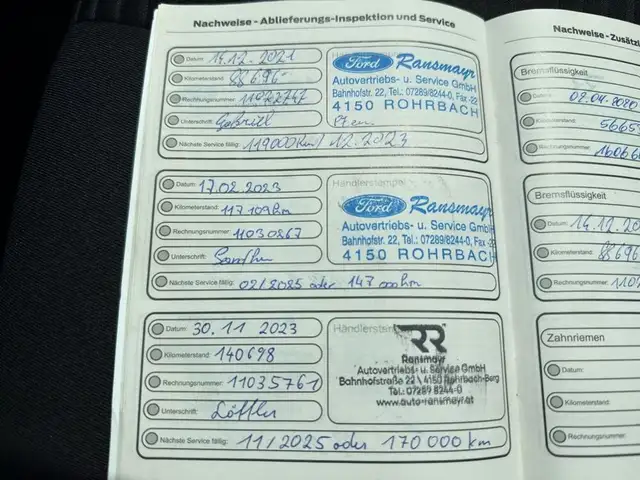 Nachweise - Ablieferungs-Inspektion und Service
Datum: 14.12.2021
Kilometerstand: 88696-
Rechnungsnummer:
Unterschrift: Gabriel
Nächste Service fällig: 119000km / 12.2023
Ford Ransmayr
Autovertriebs- u. Service GmbH
Bahnhofstr. 22, Tel.: 07289/8244-0, Fax -22
4150 ROHRBACH
Datum: 17.02.2023
Kilometerstand: 117109km
Rechnungsnummer: 11030867
Unterschrift:
Nächste Service fällig: 02/2025 oder 147000km
Händlerstempel
Ford Ransmayr
Autovertriebs- u. Service GmbH
Bahnhofstr. 22, Tel.: 07289/8244-0, Fax -22
4150 ROHRBACH
Datum: 30.11 2023
Kilometerstand: 140698
Rechnungsnummer: 11035761
Unterschrift: Löffler
Nächste Service fällig: 11/2025 oder 170000 km
Händlerstempel
RR
Ransmayr
Autovertriebs- u. Service GmbH
Bahnhofstraße 22 \ 4150 Rohrbach-Berg
Tel.: 07289 8244-0
www.auto-ransmayr.at
Nachweise - Zusätzl
Bremsflüssigkeit
Datum: 02.04.2020
Kilometerstand: 5665
Rechnungsnummer: 160666
Bremsflüssigkeit
Datum: 14.12.20
Kilometerstand: 88696
Rechnungsnummer: 1102
Zahnriemen
Datum:
Kilometerstand:
Rechnungsnummer: